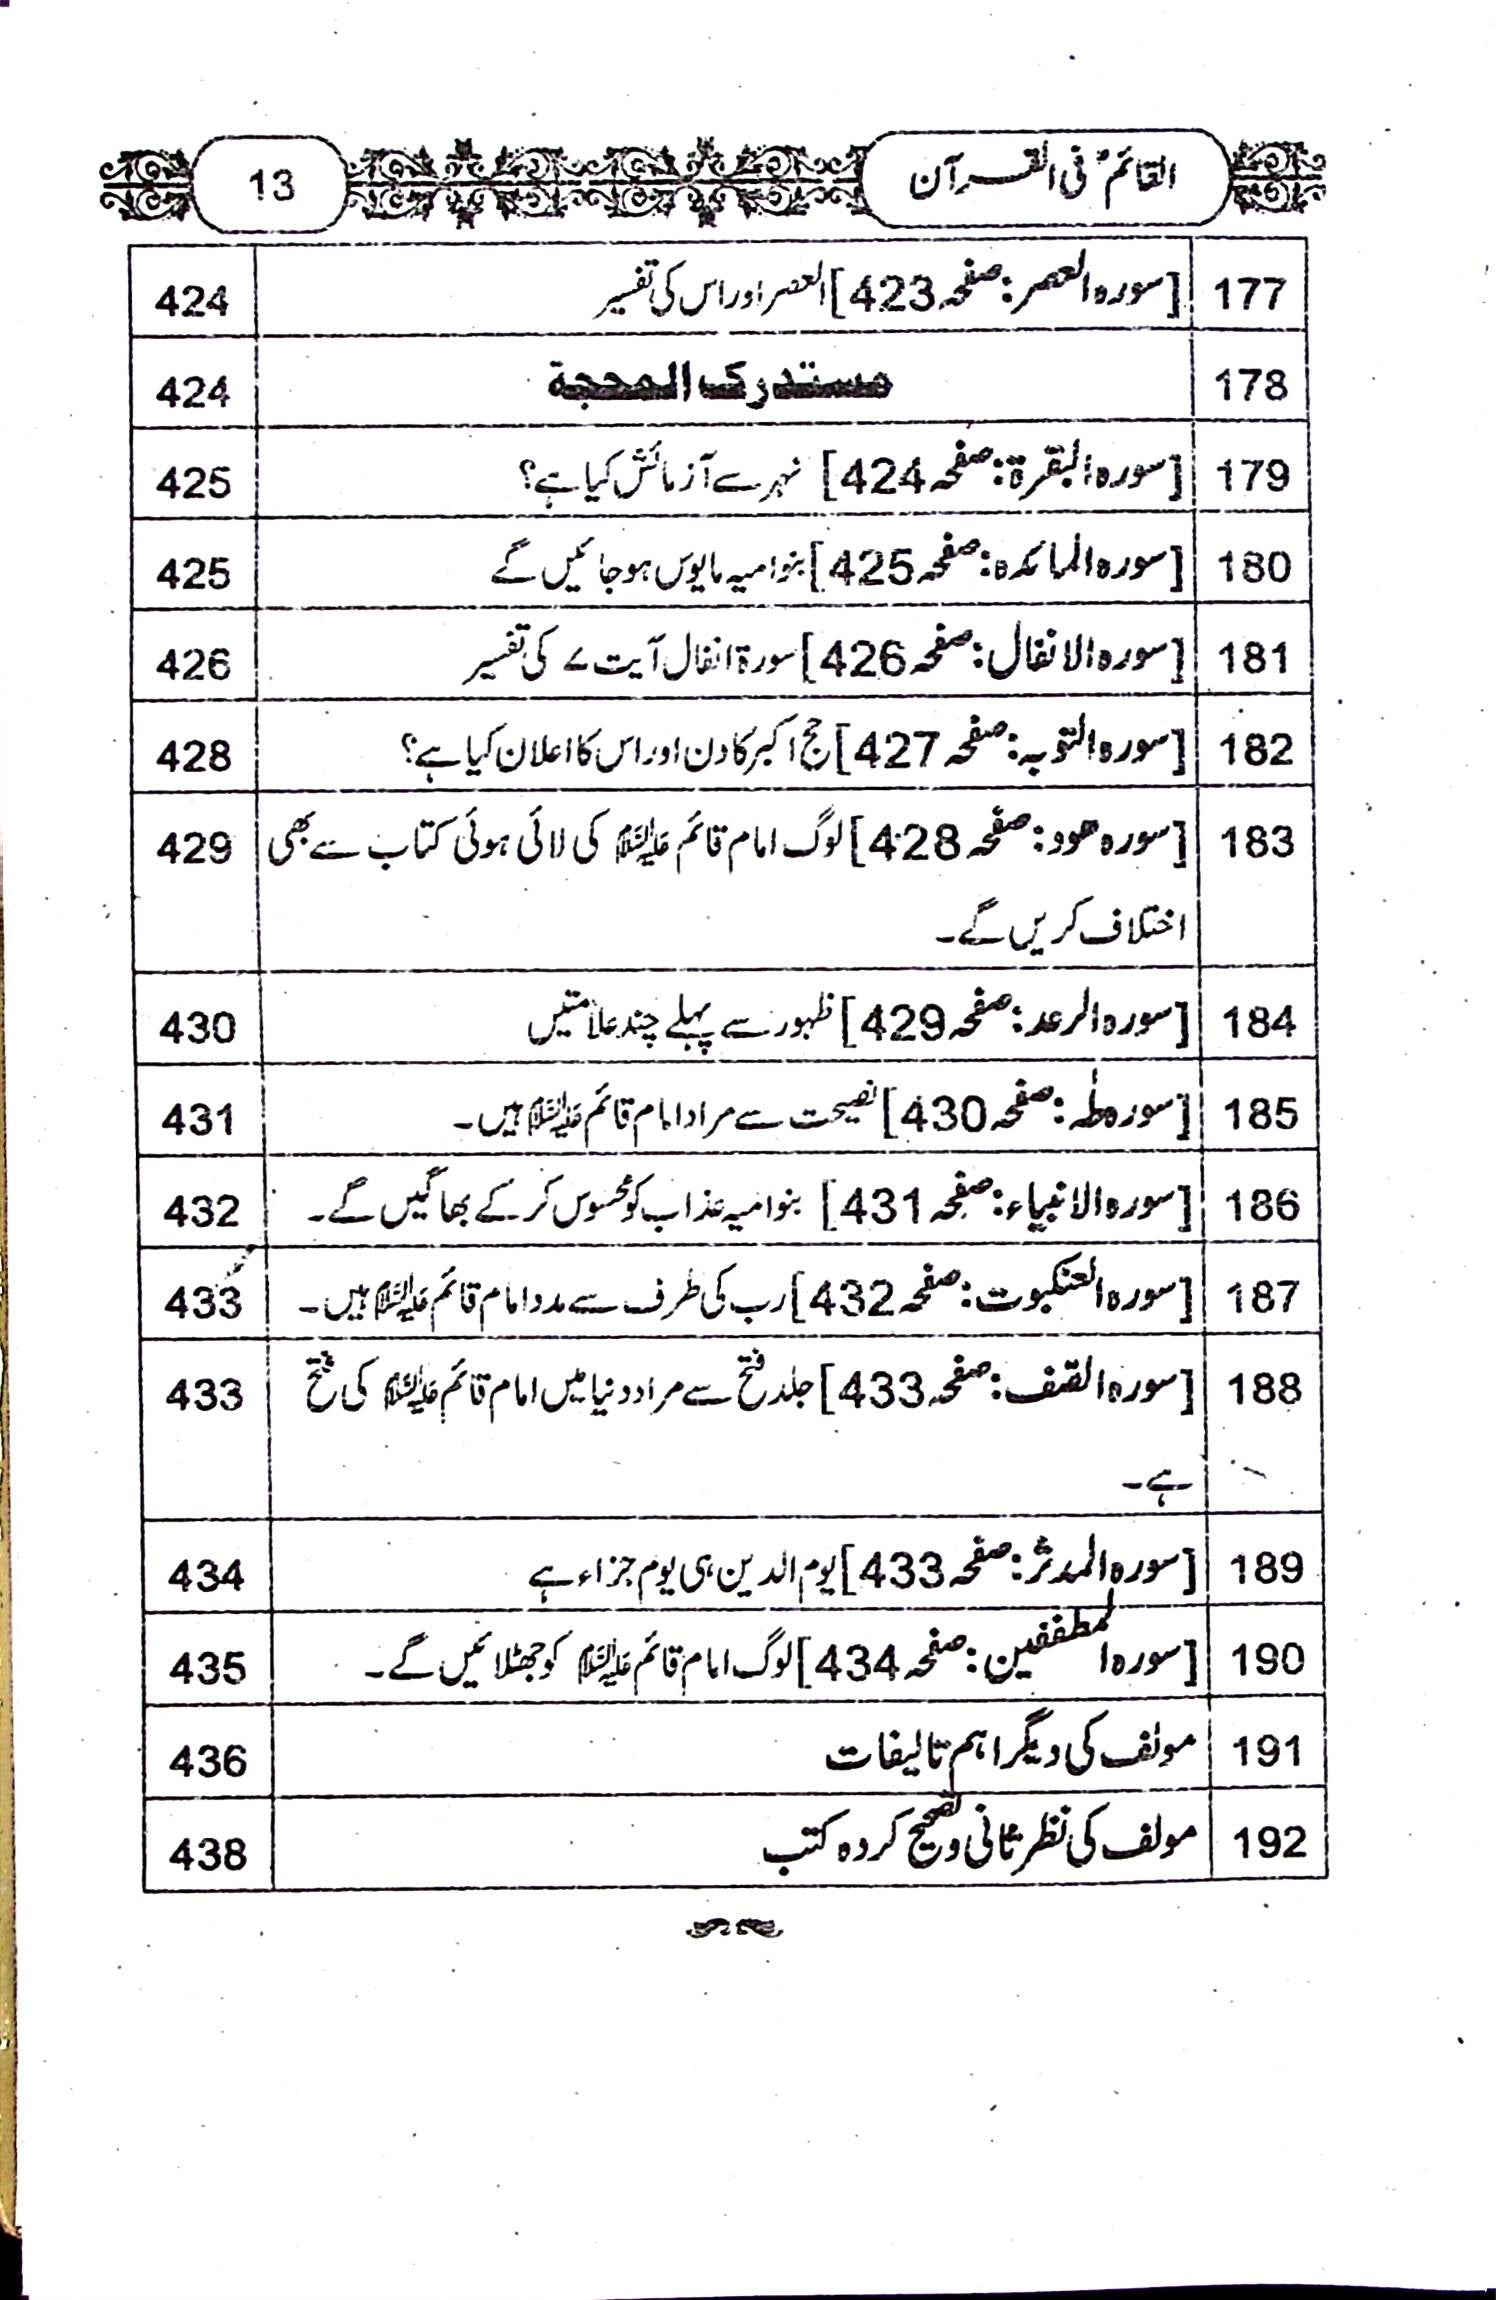 القائمؑ فی القرآن 13
177 [سورہ العصر: صفحہ 423] العصر اور اس کی تفسیر 424
178 مستدرک المحجة 424
179 [سورہ البقرۃ: صفحہ 424] نہر سے آزمائش کیا ہے؟ 425
180 [سورہ المائدہ: صفحہ 425] بنو امیہ مایوس ہو جائیں گے 425
181 [سورہ الانفال: صفحہ 426] سورۃ انفال آیت ۷ کی تفسیر 426
182 [سورہ التوبہ: صفحہ 427] حج اکبر کا دن اور اس کا اعلان کیا ہے؟ 428
183 [سورہ ھود: صفحہ 428] لوگ امام قائم علیہ السلام کی لائی ہوئی کتاب سے بھی 429
اختلاف کریں گے۔
184 [سورہ الرعد: صفحہ 429] ظہور سے پہلے چند علامتیں 430
185 [سورہ طٰہٰ: صفحہ 430] نصیحت سے مراد امام قائم علیہ السلام ہیں۔ 431
186 [سورہ الانبیاء: صفحہ 431] بنو امیہ عذاب کو محسوس کر کے بھاگیں گے۔ 432
187 [سورہ العنکبوت: صفحہ 432] رب کی طرف سے مدد امام قائم علیہ السلام ہیں۔ 433
188 [سورہ الصف: صفحہ 433] جلد فتح سے مراد دنیا میں امام قائم علیہ السلام کی فتح 433
ہے۔
189 [سورہ المدثر: صفحہ 433] یوم الدین ہی یوم جزاء ہے 434
190 [سورہ المطففین: صفحہ 434] لوگ امام قائم علیہ السلام کو جھٹلائیں گے۔ 435
191 مولف کی دیگر اہم تالیفات 436
192 مولف کی نظر ثانی و تصحیح کردہ کتب 438